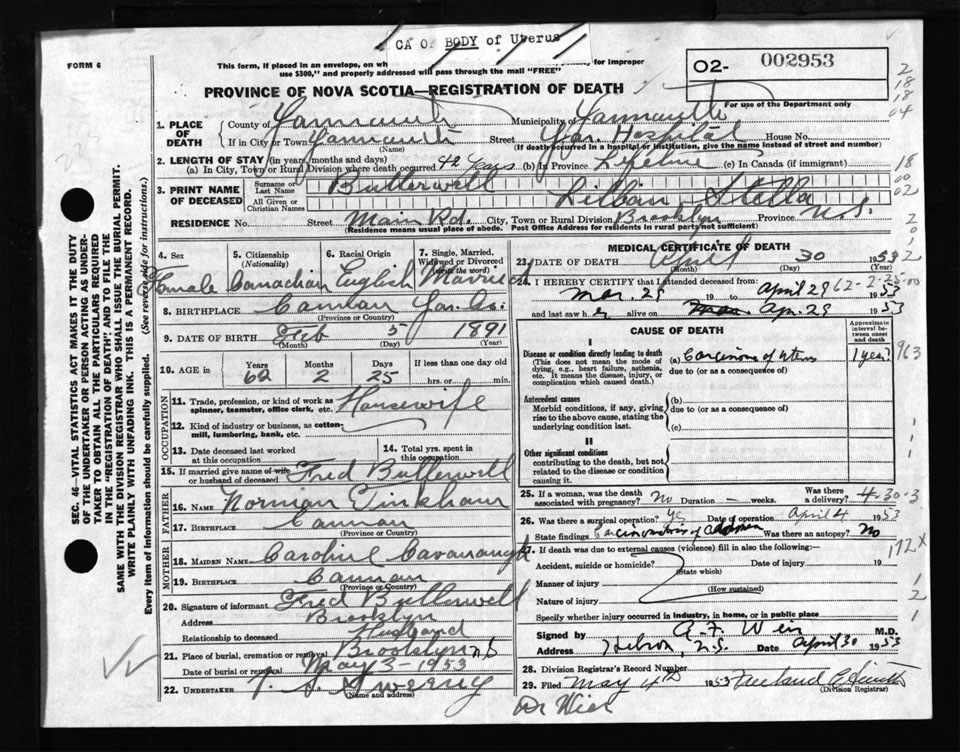 CA OF BODY of Uterus
FORM 6
This form, if placed in an envelope, on wh , for improper
use $300," and properly addressed will pass through the mail "FREE"
02- 002953
PROVINCE OF NOVA SCOTIA—REGISTRATION OF DEATH
For use of the Department only
2
18
18
04
1. PLACE OF DEATH
County of Yarmouth Municipality of Yarmouth
If in City or Town Yarmouth Street Yar. Hospital House No.
(Name) (If death occurred in a hospital or institution, give the name instead of street and number)
2. LENGTH OF STAY (in years, months and days)
a) In City, Town or Rural Division where death occurred 42 Years (b) In Province Lifetime (c) In Canada (if immigrant)
18
00
02
3. PRINT NAME OF DECEASED
Surname or Last Name Butterwell
All Given or Christian Names Lillian Stella
RESIDENCE No. Street Main Rd. City, Town or Rural Division Brooklyn Province N.S.
(Residence means usual place of abode. Post Office Address for residents in rural party not sufficient)
4. Sex 5. Citizenship (Nationality) 6. Racial Origin 7. Single, Married, Widowed or Divorced (write the word)
Female Canadian English Married
8. BIRTHPLACE Carnan Yar. Co.
(Province or Country)
9. DATE OF BIRTH Feb 5 1891
(Month) (Day) (Year)
10. AGE in Years Months Days If less than one day old
62 2 25 hrs. or min.
OCCUPATION
11. Trade, profession, or kind of work as
spinner, teamster, office clerk, etc. Housewife
12. Kind of industry or business, as cotton-
mill, lumbering, bank, etc.
13. Date deceased last worked at this occupation 14. Total yrs. spent in this occupation
15. If married give name of wife or husband of deceased Fred Butterwell
FATHER
16. NAME Norman Tinkham
17. BIRTHPLACE Carnan
(Province or Country)
MOTHER
18. MAIDEN NAME Caroline Cavanaugh
19. BIRTHPLACE Carnan
(Province or Country)
20. Signature of informant Fred Butterwell
Address Brooklyn
Relationship to deceased Husband
21. Place of burial, cremation or removal Brooklyn N.S
Date of burial or removal May 3-1953
22. UNDERTAKER Sweeny
(Name and address)
MEDICAL CERTIFICATE OF DEATH
23. DATE OF DEATH April 30 1953
(Month) (Day) (Year)
24. I HEREBY CERTIFY that I attended deceased from:
Mar. 25 19 to April 29 1953
and last saw h er alive on Apr. 29 1953
62-2-25-00
CAUSE OF DEATH
Approximate interval between onset and death
I
Disease or condition directly leading to death (a) Carcinoma of uterus 1 year?
(This does not mean the mode of due to (or as a consequence)
dying, e.g., heart failure, asthenia,
etc. It means the disease, injury, or
complication which caused death.)
963
Antecedent causes (b)
Morbid conditions, if any, giving due to (or as a consequence)
rise to the above cause, stating the
underlying condition last. (c)
II
Other significant conditions
contributing to the death, but not
related to the disease or condition
causing it.
25. If a woman, was the death Was there a
associated with pregnancy? No Duration — weeks. delivery?
4-30-3
26. Was there a surgical operation? Yes Date of operation April 4 1953
State findings Carcinomatosis of abdomen Was there an autopsy? No
27. If death was due to external causes (violence) fill in also the following:—
172X
Accident, suicide or homicide? Date of injury 19
(State which)
Manner of injury
(How sustained)
Nature of injury
Specify whether injury occurred in industry, in home, or in public place
Signed by G. F. Weir M.D.
Address Hebron, N.S. Date April 30 1953
28. Division Registrar's Record Number
29. Filed May 4th 1953
(Division Registrar)
Dr Weir
SEC. 46—VITAL STATISTICS ACT MAKES IT THE DUTY
OF THE UNDERTAKER OR PERSON ACTING AS UNDER-
TAKER TO OBTAIN ALL THE PARTICULARS REQUIRED
IN THE "REGISTRATION OF DEATH" AND TO FILE THE
SAME WITH THE DIVISION REGISTRAR WHO SHALL ISSUE THE BURIAL PERMIT.
WRITE PLAINLY WITH UNFADING INK. THIS IS A PERMANENT RECORD.
Every item of information should be carefully supplied. (See reverse side for instructions.)